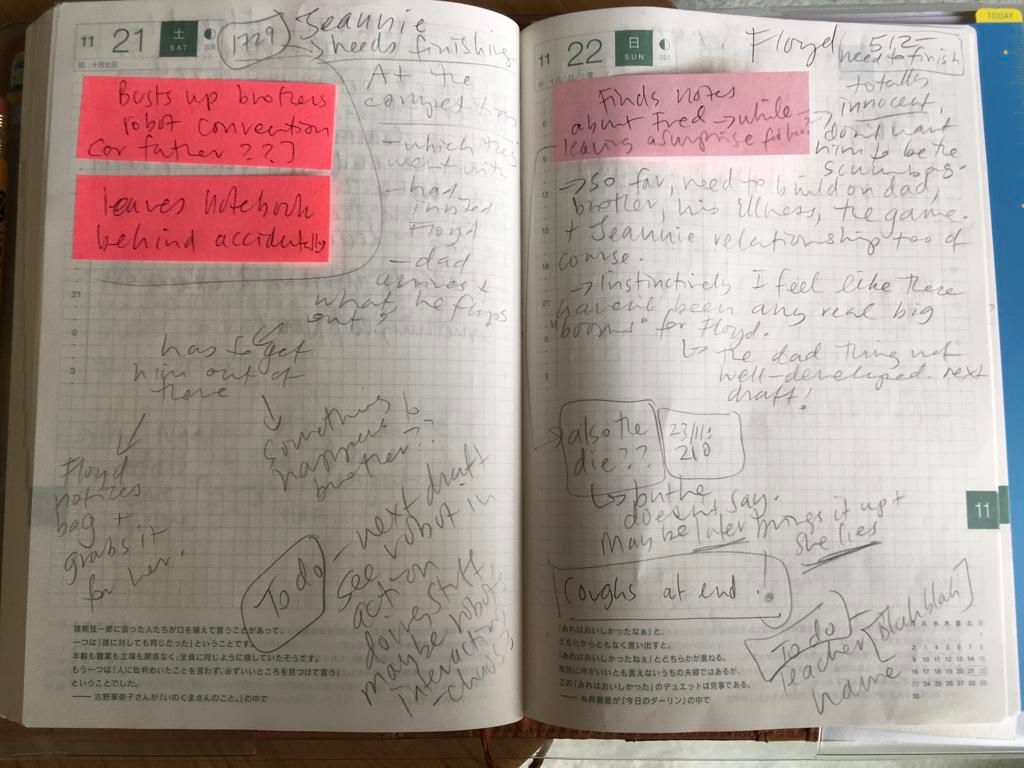 11 21 土 SAT
1729
Jeannie
→ needs finishing
Busts up brothers
robot convention
(or father ???]
leaves notebook
behind accidentally
At the
competition
- which they
went with
- had
invited
Floyd
- dad
arrives +
what he flips
out?
has to get
him out of
there
Floyd
notices
bag +
grabs it
for her.
something
happens b
brother??
To do
- next draft
see robot in
action
doing stuff,
maybe robot
interacting
- chaos
21
0
3
猪熊弦一郎に会った人たちが口を揃えて言うことがあって、
一つは「誰に対しても同じだった」ということです。
年齢も職業も立場も関係なく、全員に同じように接していたそうです。
もう一つは「人に批判めいたことを言わず、必ずいいところを見つけて言う」
ということでした。
—— 古野華奈子さんが『いのくまさんのこと。』の中で
11 22 日 SUN
327
TODAY
Floyd
512-
need to finish
Finds notes
about Fred → while
leaving a surprise for him
→ totally
innocent,
don't want
him to be the
scumbag.
→ So far, need to build on dad,
brother, his illness, the game.
+ Jeannie relationship too of
course.
→ Instinctively I feel like there
haven't been any real big
"booms" for Floyd.
↳ the dad thing not
well-developed. next
draft!
→ also the
die??
23/11:
210
↳ but he
doesn't say.
Maybe later brings it up +
she lies
Coughs at end!
To do
teacher
name
[Blah blah]
11
「あれはおいしかったなぁ」と、
どちらからともなく言い出すと、
「あれはおいしかったねぇ」とどちらかが重ねる。
格別に仲がいいとも言えないうちの夫婦ではあるが、
この「あれはおいしかった」のデュエットは見事である。
—— 糸井重里が『今日のダーリン』の中で